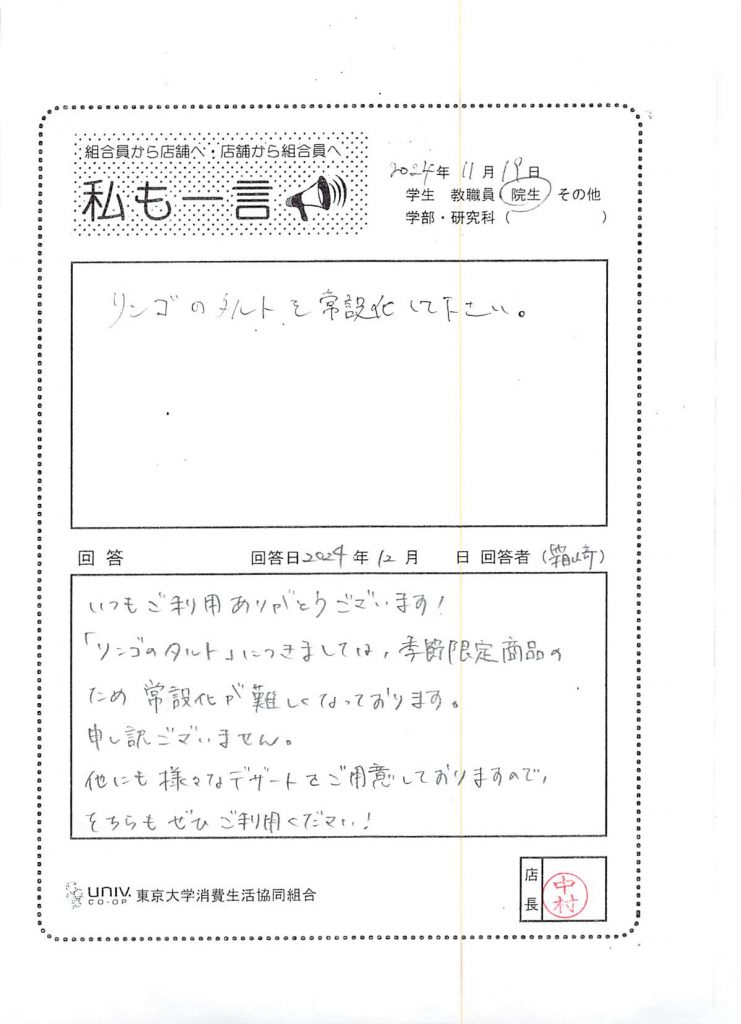 組合員から店舗へ・店舗から組合員へ
私も一言
2024年 11月 19日
学生 教職員 院生 その他
学部・研究科 ( )
リンゴのタルトを常設化して下さい。
回答 回答日2024年 12月 日 回答者 (霜崎)
いつもご利用ありがとうございます!
「リンゴのタルト」につきましては、季節限定商品の
ため 常設化が難しくなっております。
申し訳ございません。
他にも様々なデザートをご用意しておりますので、
そちらもぜひご利用ください!
UNIV. CO-OP 東京大学消費生活協同組合
店長 中村